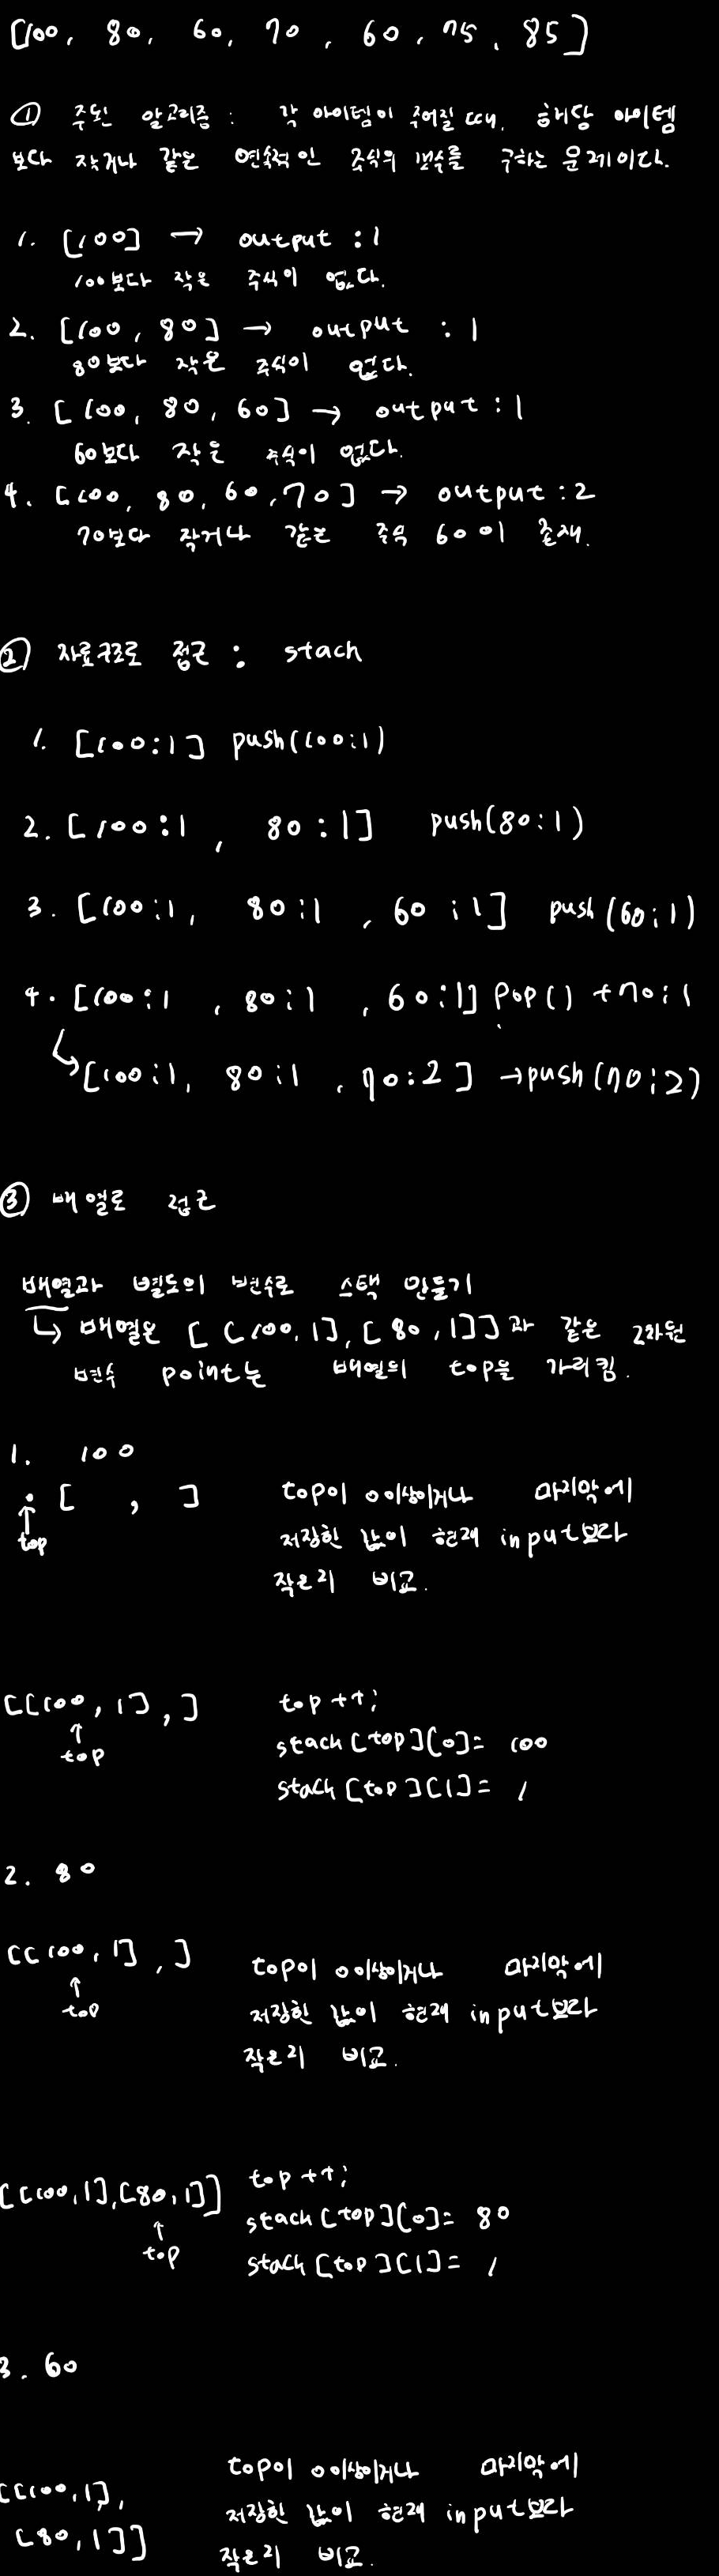 [100, 80, 60, 70, 60, 75, 85]
① 주된 알고리즘 : 각 아이템이 주어질 때, 해당 아이템
보다 작거나 같은 연속적인 주식의 갯수를 구하는 문제이다.
1. [100] → output : 1
100보다 작은 주식이 없다.
2. [100, 80] → output : 1
80보다 작은 주식이 없다.
3. [100, 80, 60] → output : 1
60보다 작은 주식이 없다.
4. [100, 80, 60, 70] → output : 2
70보다 작거나 같은 주식 60이 존재.
② 자료구조로 접근 : stack
1. [100:1] push(100:1)
2. [100:1, 80:1] push(80:1)
3. [100:1, 80:1, 60:1] push(60:1)
4. [100:1, 80:1, 60:1] pop() +70:1
↳ [100:1, 80:1, 70:2] → push(70:2)
③ 배열로 접근
배열과 별도의 변수로 스택 만들기
↳ 배열은 [[100,1],[80,1]]과 같은 2차원
변수 point는 배열의 top을 가리킴.
1. 100
. [ , ] top이 0이상이거나 마지막에
↑ top 저장한 값이 현재 input보다
작은지 비교.
[[100,1], ] top++;
↑ stack[top][0]= 100
top stack[top][1]= 1
2. 80
[[100,1], ] top이 0이상이거나 마지막에
↑ top 저장한 값이 현재 input보다
작은지 비교.
[[100,1],[80,1]] top++;
↑ stack[top][0]= 80
top stack[top][1]= 1
3. 60
[[100,1], top이 0이상이거나 마지막에
[80,1]] 저장한 값이 현재 input보다
작은지 비교.